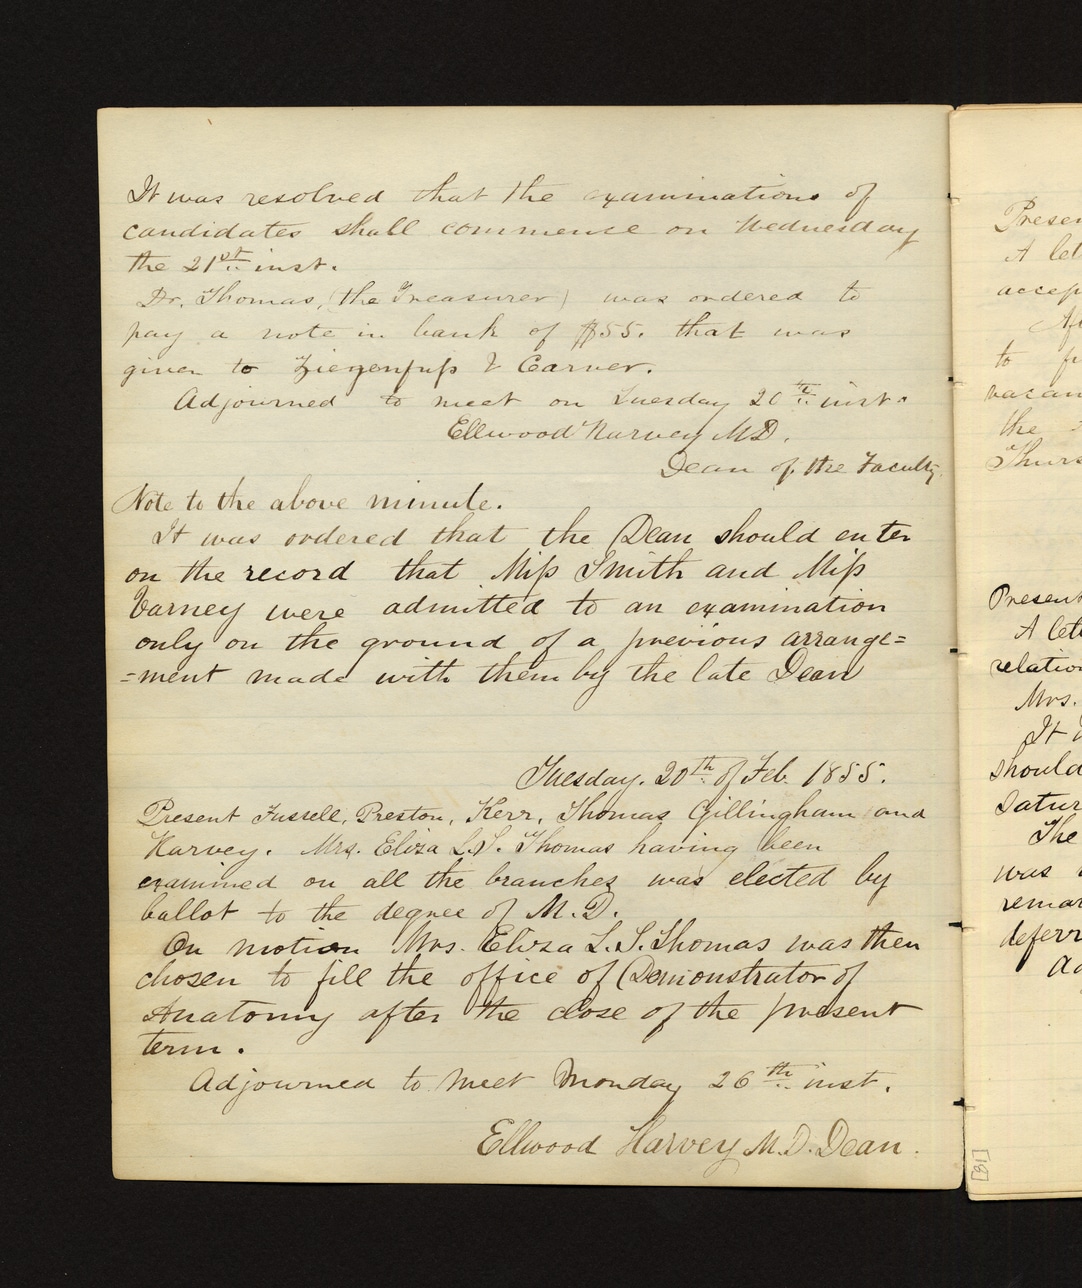 It was resolved that the examinations of
candidates shall commence on Wednesday
the 21st inst.
Dr. Thomas, (the Treasurer) was ordered to
pay a note in bank of $55. that was
given to Ziegenfuss & Carver.
Adjourned to meet on Tuesday 20th inst.
Ellwood Harvey M.D.
Dean of the Faculty.
Note to the above minute.
It was ordered that the Dean should enter
on the record that Miss Smith and Miss
Varney were admitted to an examination
only on the ground of a previous arrange=
=ment made with them by the late Dean
Tuesday. 20th of Feb. 1855.
Present Fussell, Preston, Kerr, Thomas Gillingham and
Harvey. Mrs. Eliza L.S. Thomas having been
examined on all the branches was elected by
ballot to the degree of M.D.
On motion Mrs. Eliza L.S. Thomas was then
chosen to fill the office of Demonstrator of
Anatomy after the close of the present
term.
Adjourned to meet Monday 26th inst.
Ellwood Harvey M.D. Dean.
Presen
A let
accep
to
vacan
the
Thurs
Present
A lett
relation
Mrs.
It
should
Satur
The
was
remar
deferr
Ad
[81]